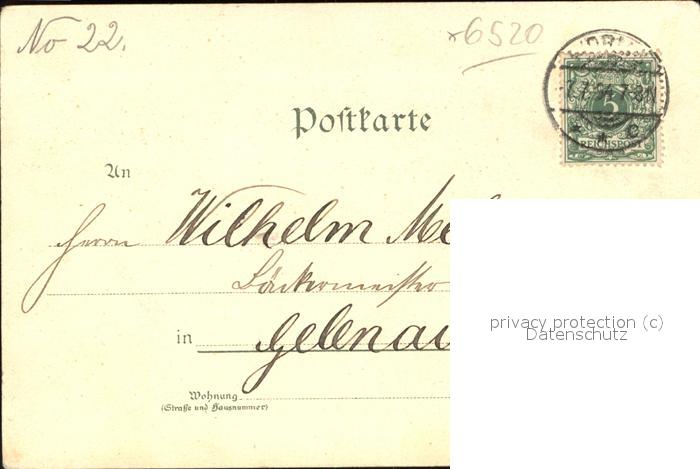 No 22.
6520
5
REICHSPOST
Postkarte
An
Herrn Wilhelm
Bäckermeister
in Gelenau
Wohnung
(Straße und Hausnummer)
privacy protection (c)
Datenschutz